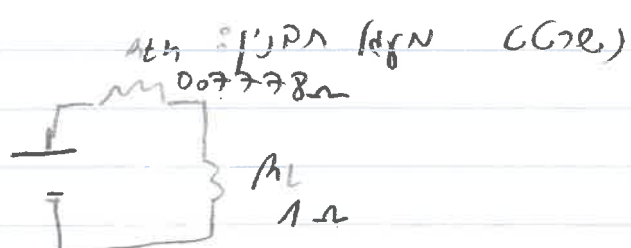 (שרטט מעגל תבנין: Rth
0.07778Ω
RL
1Ω